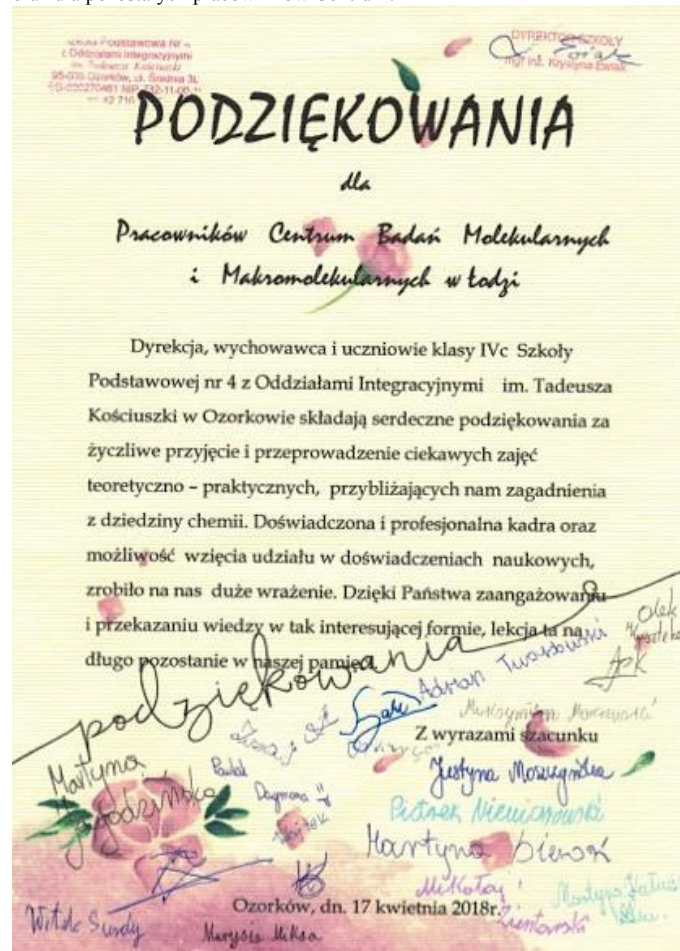 z Oddziałami Integracyjnymi
im. Tadeusza Kościuszki
DYREKTOR SZKOŁY
mgr inż. Krystyna
PODZIĘKOWANIA
dla
Pracowników Centrum Badań Molekularnych
i Makromolekularnych w Łodzi
Dyrekcja, wychowawca i uczniowie klasy IVc Szkoły
Podstawowej nr 4 z Oddziałami Integracyjnymi im. Tadeusza
Kościuszki w Ozorkowie składają serdeczne podziękowania za
życzliwe przyjęcie i przeprowadzenie ciekawych zajęć
teoretyczno – praktycznych, przybliżających nam zagadnienia
z dziedziny chemii. Doświadczona i profesjonalna kadra oraz
możliwość wzięcia udziału w doświadczeniach naukowych,
zrobiło na nas duże wrażenie. Dzięki Państwa zaangażowaniu
i przekazaniu wiedzy w tak interesującej formie, lekcja ta na
długo pozostanie w naszej pamięci
podziękowania
Olek
Adrian
Z wyrazami szacunku
Martyna
Justyna Moszczyńska
Dagmara
Wojtek
Piotrek
Martyna
Mikołaj
Martyna
Ozorków, dn. 17 kwietnia 2018r.
Witek
Marysia Miksa